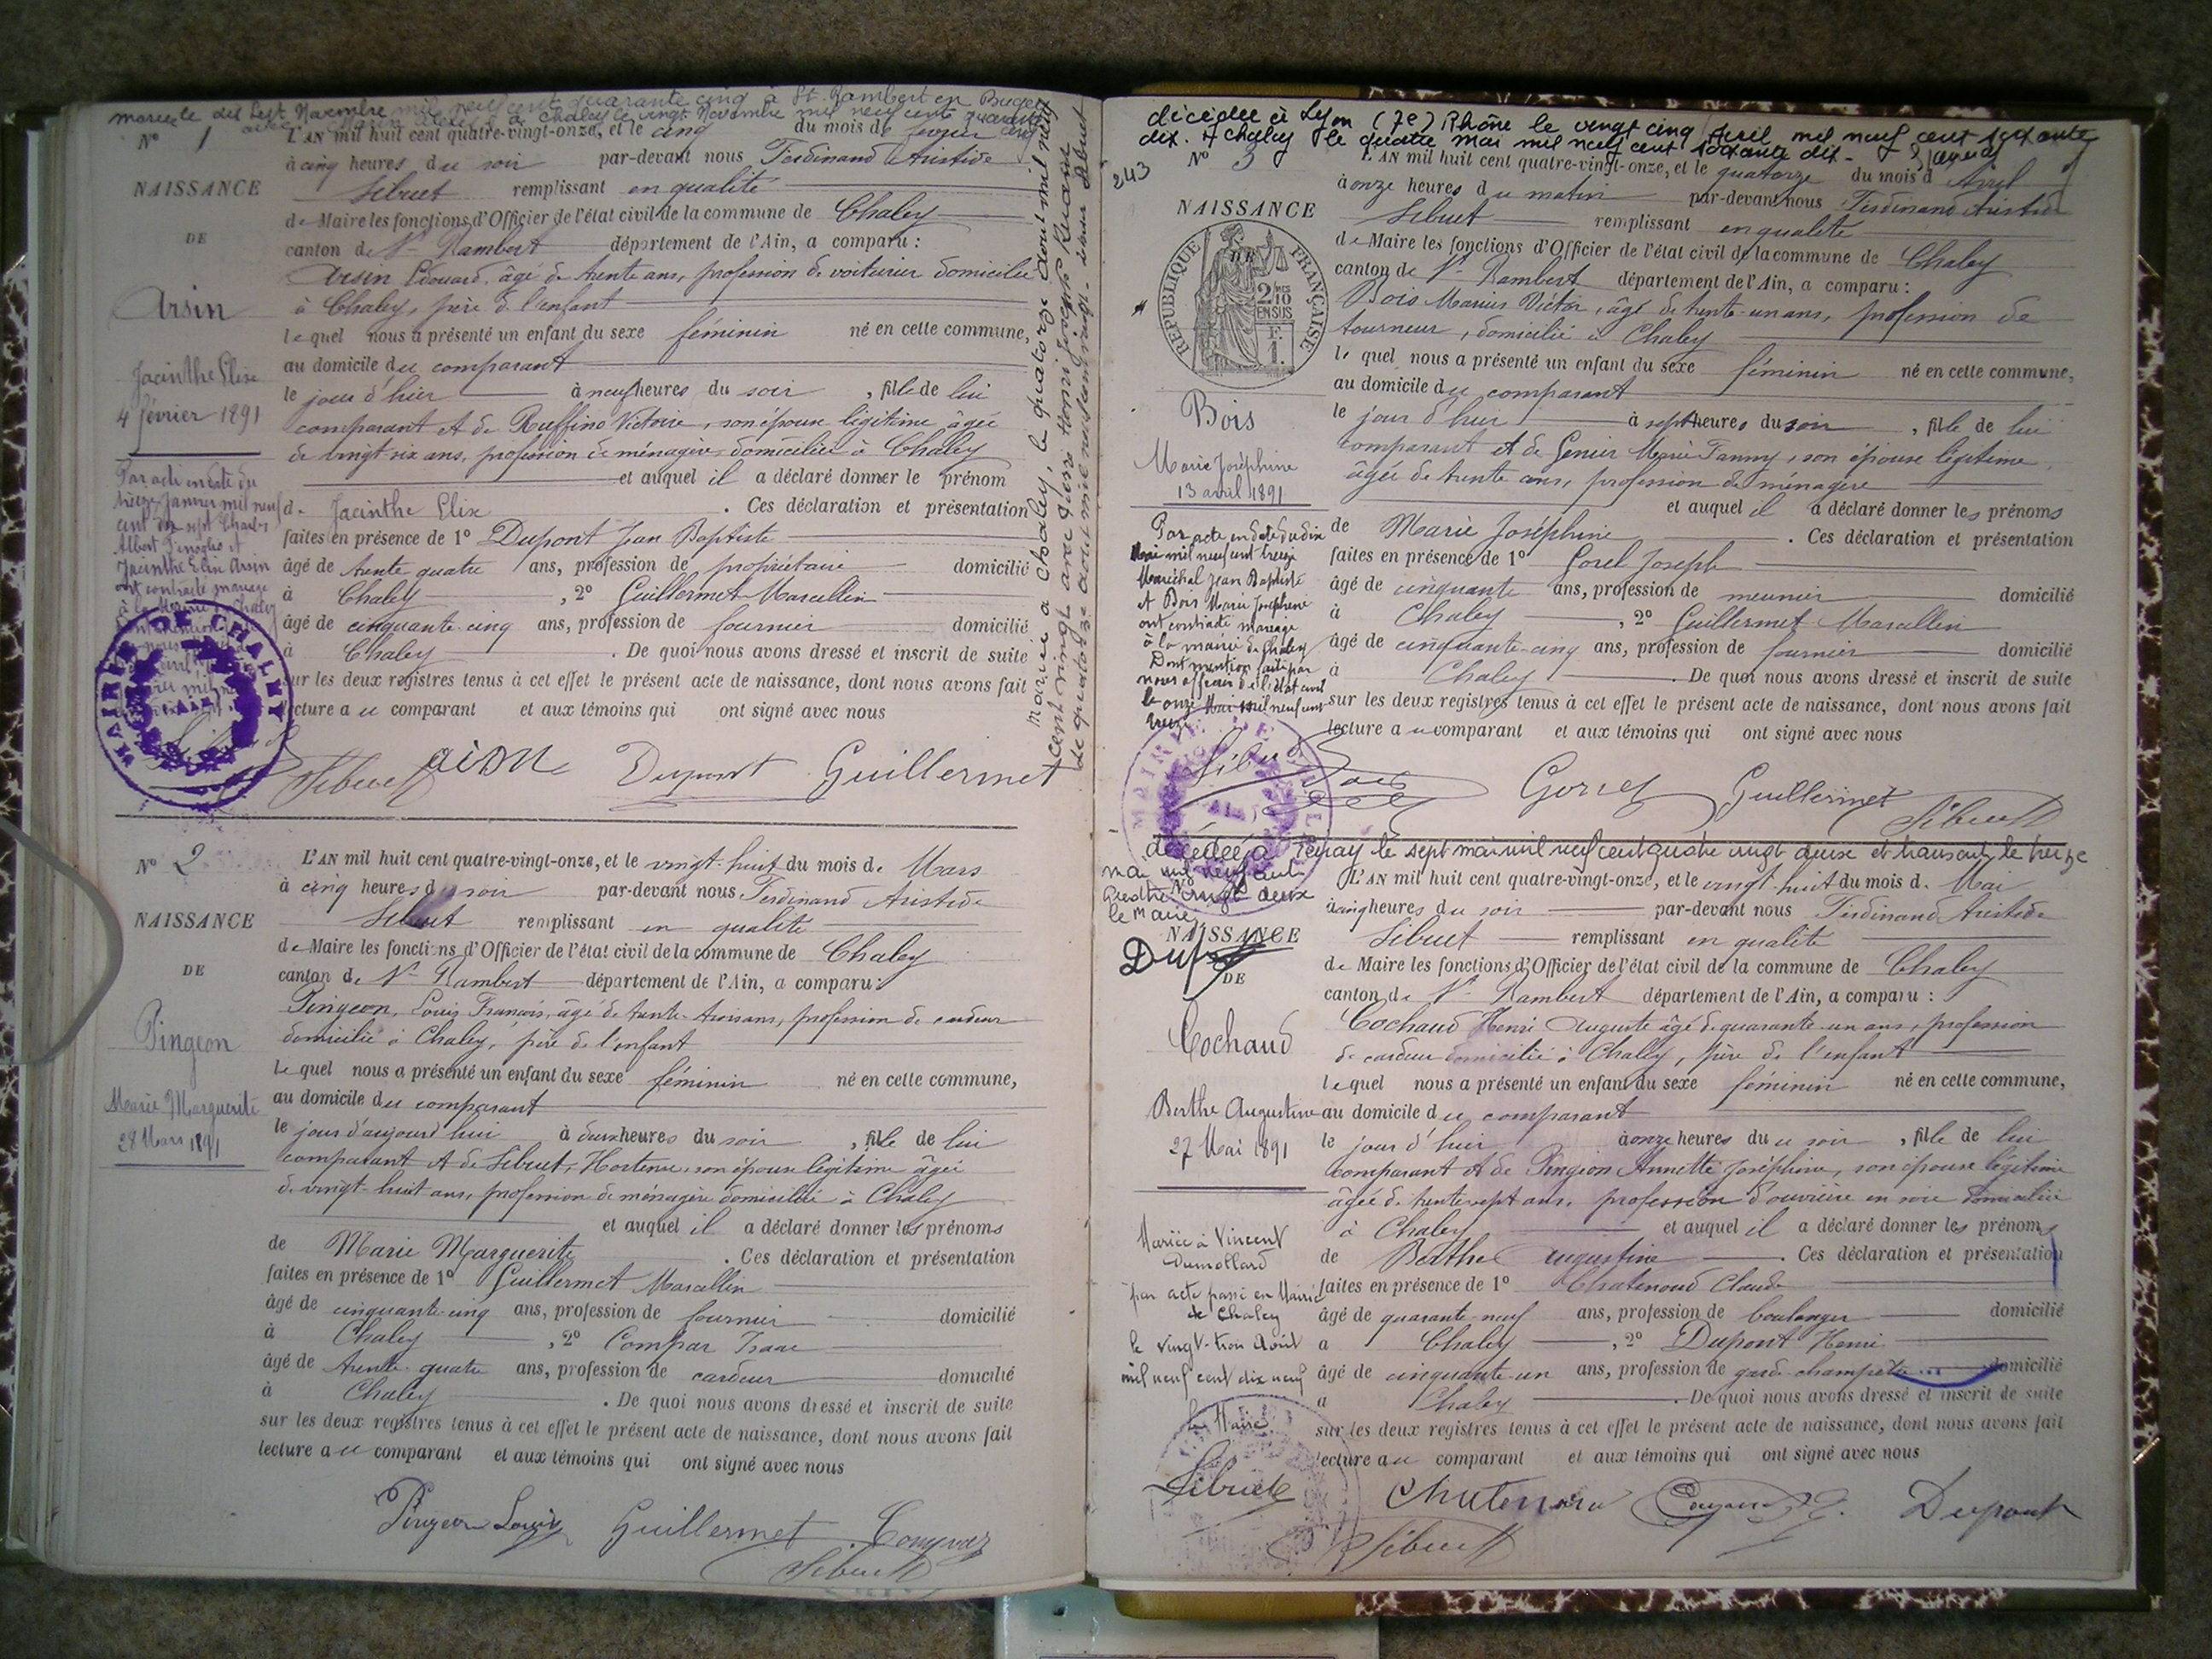 mariée le dix sept Novembre mil neuf cent quarante cinq à St. Rambert en Bugey
à Chaley le vingt Novembre mil neuf cent quarante cinq
N° 1
L'AN mil huit cent quatre-vingt-onze, et le cinq du mois de février
à cinq heures du soir par-devant nous Ferdinand Aristide
NAISSANCE
Sibuet remplissant en qualité
de Maire les fonctions d'Officier de l'état civil de la commune de Chaley
DE
canton de St Rambert département de l'Ain, a comparu :
Arsin Edouard, âgé de trente ans, profession de voiturier domicilié
Arsin
à Chaley, père de l'enfant
lequel nous a présenté un enfant du sexe féminin né en cette commune,
au domicile du comparant
Jacinthe Elise
le jour d'hier à neuf heures du soir, fille de lui
4 février 1891
comparant et de Ruffino Victoire, son épouse légitime âgée
de vingt six ans, profession de ménagère domiciliée à Chaley
et auquel il a déclaré donner le prénom
de Jacinthe Elise. Ces déclaration et présentation
faites en présence de 1° Dupont Jean Baptiste
âgé de trente quatre ans, profession de propriétaire domicilié
à Chaley, 2° Guillermet Marcellin
âgé de cinquante-cinq ans, profession de fournier domicilié
à Chaley. De quoi nous avons dressé et inscrit de suite
sur les deux registres tenus à cet effet le présent acte de naissance, dont nous avons fait
lecture au comparant et aux témoins qui ont signé avec nous
Par acte en date du
treize Janvier mil neuf
cent dix sept Charles
Albert
Jacinthe Elise Arsin
ont contracté mariage
à la Mairie de Chaley
MAIRIE DE CHALEY
AIN
Sibuet Dupont Guillermet
Mariée à Chaley, le quatorze août mil neuf
cent vingt avec Pierre Henri Joseph
Le quatorze août mil neuf cent vingt. Sibuet
N° 2
L'AN mil huit cent quatre-vingt-onze, et le vingt-huit du mois de Mars
à cinq heures du soir par-devant nous Ferdinand Aristide
NAISSANCE
Sibuet remplissant en qualité
de Maire les fonctions d'Officier de l'état civil de la commune de Chaley
DE
canton de St Rambert département de l'Ain, a comparu :
Pingeon, Louis François, âgé de trente-trois ans, profession de cardeur
Pingeon
domicilié à Chaley, père de l'enfant
lequel nous a présenté un enfant du sexe féminin né en cette commune,
au domicile du comparant
Marie Marguerite
28 Mars 1891
le jour d'aujourd'hui à deux heures du soir, fille de lui
comparant et de Sibuet, Hortense, son épouse légitime âgée
de vingt-huit ans, profession de ménagère domiciliée à Chaley
et auquel il a déclaré donner les prénoms
de Marie Marguerite. Ces déclaration et présentation
faites en présence de 1° Guillermet Marcellin
âgé de cinquante-cinq ans, profession de fournier domicilié
à Chaley, 2° Compar Isaac
âgé de trente-quatre ans, profession de cardeur domicilié
à Chaley. De quoi nous avons dressé et inscrit de suite
sur les deux registres tenus à cet effet le présent acte de naissance, dont nous avons fait
lecture au comparant et aux témoins qui ont signé avec nous
Pingeon Louis Guillermet
Sibuet
décédée à Lyon (7e) Rhône le vingt cinq Avril mil neuf cent soixante
dix. A Chaley le quatre Mai mil neuf cent soixante dix.
243
N° 3
L'AN mil huit cent quatre-vingt-onze, et le quatorze du mois d'Avril
à onze heures du matin par-devant nous Ferdinand Aristide
NAISSANCE
Sibuet remplissant en qualité
de Maire les fonctions d'Officier de l'état civil de la commune de Chaley
DE
RÉPUBLIQUE FRANÇAISE
2/10 EN SUS
F. 1.
canton de St Rambert département de l'Ain, a comparu :
Bois Marius Victor, âgé de trente-un ans, profession de
tourneur, domicilié à Chaley
lequel nous a présenté un enfant du sexe féminin né en cette commune,
au domicile du comparant
Bois
le jour d'hier à sept heures du soir, fille de lui
comparant et de Genier Marie Fanny, son épouse légitime,
Marie Joséphine
13 avril 1891
âgée de trente ans, profession de ménagère
et auquel il a déclaré donner les prénoms
de Marie Joséphine. Ces déclaration et présentation
faites en présence de 1° Gorel Joseph
âgé de cinquante ans, profession de meunier domicilié
à Chaley, 2° Guillermet Marcellin
âgé de cinquante-cinq ans, profession de fournier domicilié
à Chaley. De quoi nous avons dressé et inscrit de suite
sur les deux registres tenus à cet effet le présent acte de naissance, dont nous avons fait
lecture au comparant et aux témoins qui ont signé avec nous
Par acte en date du dix
Mai mil neuf cent treize
Maréchal Jean Baptiste
et Bois Marie Joséphine
ont contracté mariage
à la mairie de Chaley
Dont mention faite par
nous officier de l'état civil
le onze Mai mil neuf cent
treize.
Sibuet
Bois Gorel Guillermet
Sibuet
décédée à Tenay le sept mai mil neuf cent quatre vingt deux et transcrit le treize
mai mil neuf cent
quatre vingt deux
le Maire
L'AN mil huit cent quatre-vingt-onze, et le vingt-huit du mois de Mai
à cinq heures du soir par-devant nous Ferdinand Aristide
NAISSANCE
Sibuet remplissant en qualité
de Maire les fonctions d'Officier de l'état civil de la commune de Chaley
DE
canton de St Rambert département de l'Ain, a comparu :
Cochaud Henri Auguste âgé de quarante-un ans, profession
Cochaud
de cardeur domicilié à Chaley, père de l'enfant
lequel nous a présenté un enfant du sexe féminin né en cette commune,
Berthe Augustine
au domicile du comparant
27 Mai 1891
le jour d'hier à onze heures du soir, fille de lui
comparant et de Pingeon Annette Joséphine, son épouse légitime
âgée de trente-sept ans, profession d'ouvrière en soie domiciliée
à Chaley et auquel il a déclaré donner les prénoms
de Berthe Augustine. Ces déclaration et présentation
faites en présence de 1° Chatenoud Claude
âgé de quarante-neuf ans, profession de boulanger domicilié
à Chaley, 2° Dupont Henri
âgé de cinquante-un ans, profession de garde-champêtre domicilié
à Chaley. De quoi nous avons dressé et inscrit de suite
sur les deux registres tenus à cet effet le présent acte de naissance, dont nous avons fait
lecture au comparant et aux témoins qui ont signé avec nous
Mariée à Vincent
Dumollard
par acte passé en Mairie
de Chaley
le vingt-trois Août
mil neuf cent dix neuf
Le Maire
Sibuet
Chatenoud Dupont
Sibuet